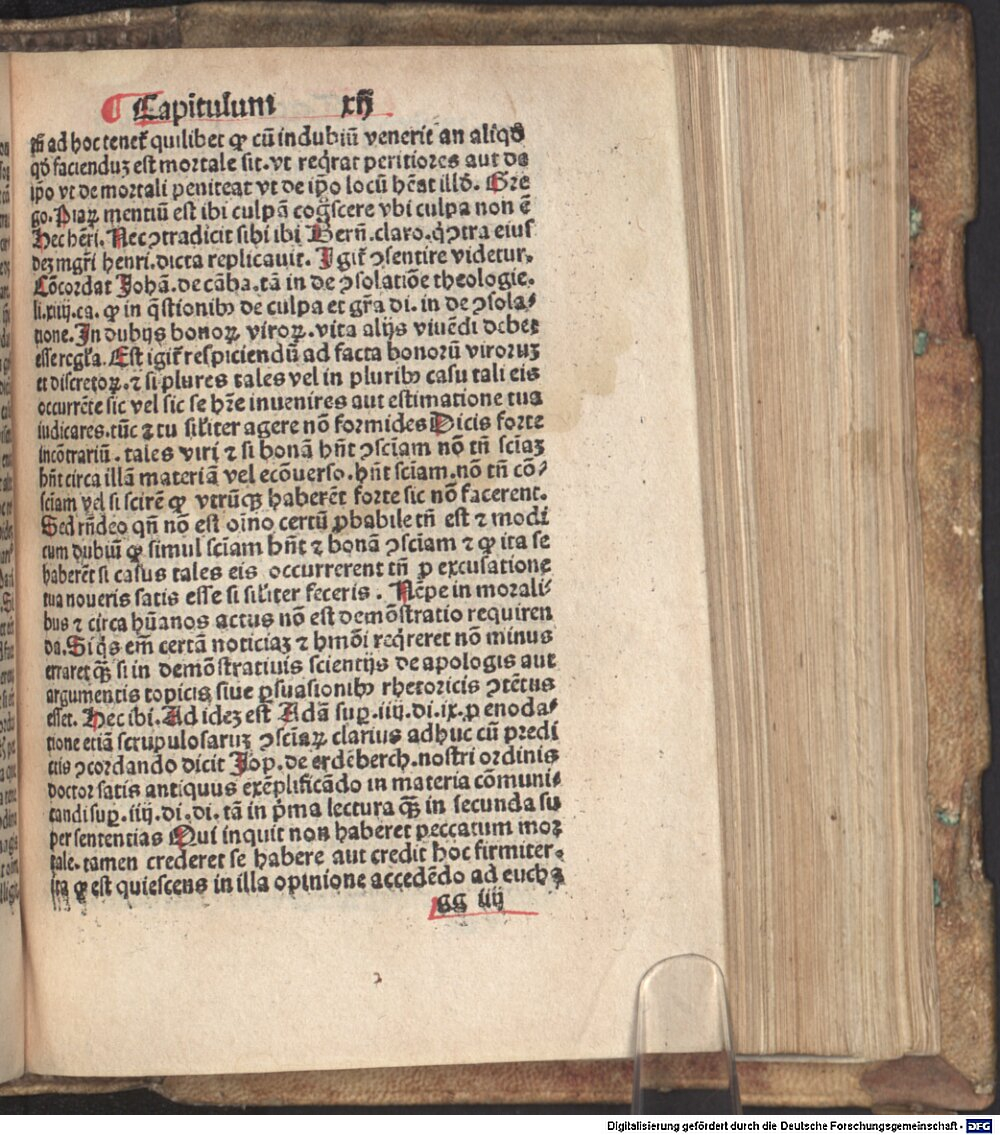 ¶ Capitulum xij
tñ ad hoc tenet᷑ quilibet ꝙ cū in dubiū venerit an aliqͦd
qͦd facienduꝫ est mortale sit. vt reqͥrat peritiores aut de
ip̄o vt de mortali peniteat vt de ip̄o locū hēat illḋ. Gre
go. Piaꝝ mentiū est ibi culpā cog̃scere vbi culpa non ē
Hec hēri. Nec ↄtradicit sibi ibi Berñ. claro. qͥ ↄtra eius
deꝫ mgr̄i henri. dicta replicauit. Igit᷑ ↄsentire videtur.
Cōcordat Johā. de cāba. tā in de ↄsolatiōe theologie.
li.xiiij.ca. ꝙ in q̄stionibꝫ de culpa et gr̄a di. in de ↄsola⸗
tione. In dubijs bonoꝝ viroꝝ. vita alijs viuēdi debet
esse regl̄a. Est igit᷑ respiciendū ad facta bonorū viroruꝫ
et discretoꝝ. ⁊ si plures tales vel in pluribꝫ casu tali eis
occurrēte sic vel sic se hr̄e inuenires aut estimatione tua
iudicares. tūc ⁊ tu sil̄iter agere nō formides Dicis forte
incōtrariū. tales viri ⁊ si bonā hn̄t ↄsciam nō tn̄ sciaꝫ
hn̄t circa illā materiā vel ecōuerso. hn̄t sciam. nō tn̄ cō⸗
sciam vel si scirē ꝙ vtrūqꝫ haberēt forte sic nō facerent.
Sed rn̄deo qn̄ nō est oīno certū ꝓbabile tn̄ est ⁊ modi
cum dubiū ꝙ simul sciam hn̄t ⁊ bonā ↄsciam ⁊ ꝙ ita se
haberēt si casus tales eis occurrerent tn̄ ꝓ excusatione
tua noueris satis esse si sil̄iter feceris. Nēpe in morali⸗
bus ⁊ circa hūanos actus nō est demōstratio requiren
da. Siqͥs em̄ certā noticiaꝫ ⁊ hmōi reqͥreret nō minus
erraret qꝫ̄ si in demōstratiuis scientijs de apologis aut
argumentis topicis siue ꝑsuasionibꝫ rhetoricis ↄtētus
esset. Hec ibi. Ad ideꝫ est Adā suꝑ.iiij.di.ix. ꝓ enoda⸗
tione etiā scrupulosaruꝫ ↄsciaꝝ clarius adhuc cū predi
ctis ↄcordando dicit Jop. de erdēberch. nostri ordinis
doctor satis antiquus exēplificādo in materia cōmuni⸗
candi suꝑ.iiij.di. di. tā in pͥma lectura qꝫ̄ in secunda su
per sententias Qui inquit non haberet peccatum moꝛ
tale. tamen crederet se habere aut credit hoc firmiter.
ita ꝙ est quiescens in illa opinione accedēdo ad eucha
GG iiij
Digitalisierung gefördert durch die Deutsche Forschungsgemeinschaft - DFG